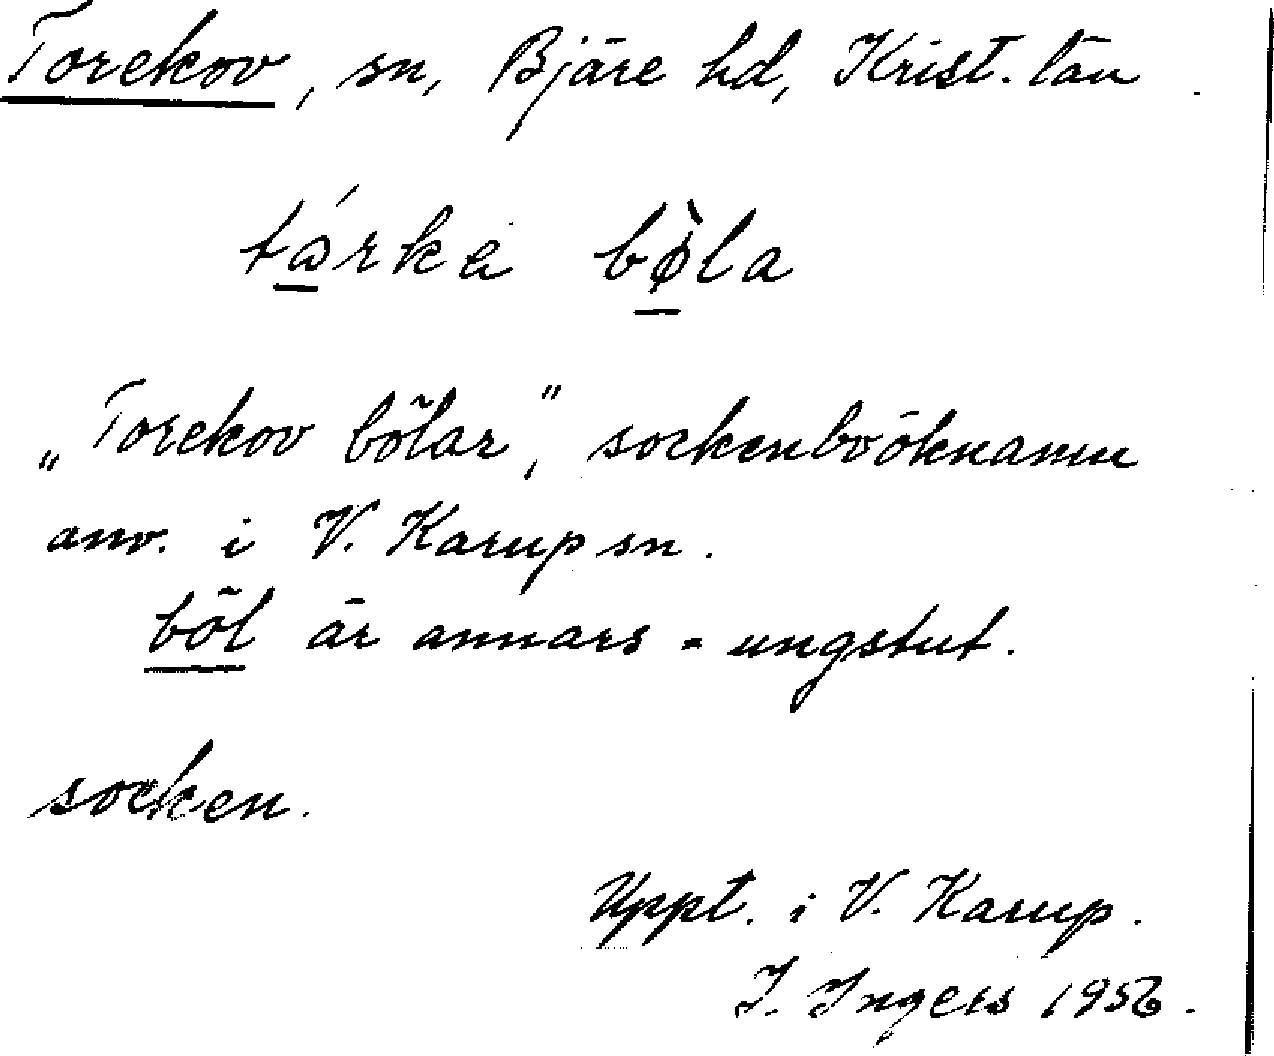 Torekov, sn, Bjäre hd, Krist. län.
böla
„Torekov bölar", sockenböknamn
anv. i V. Karup sn.
böl är annars = ungstut.
socken.
Uppt. i V. Karup.
I. Ingers 1956.